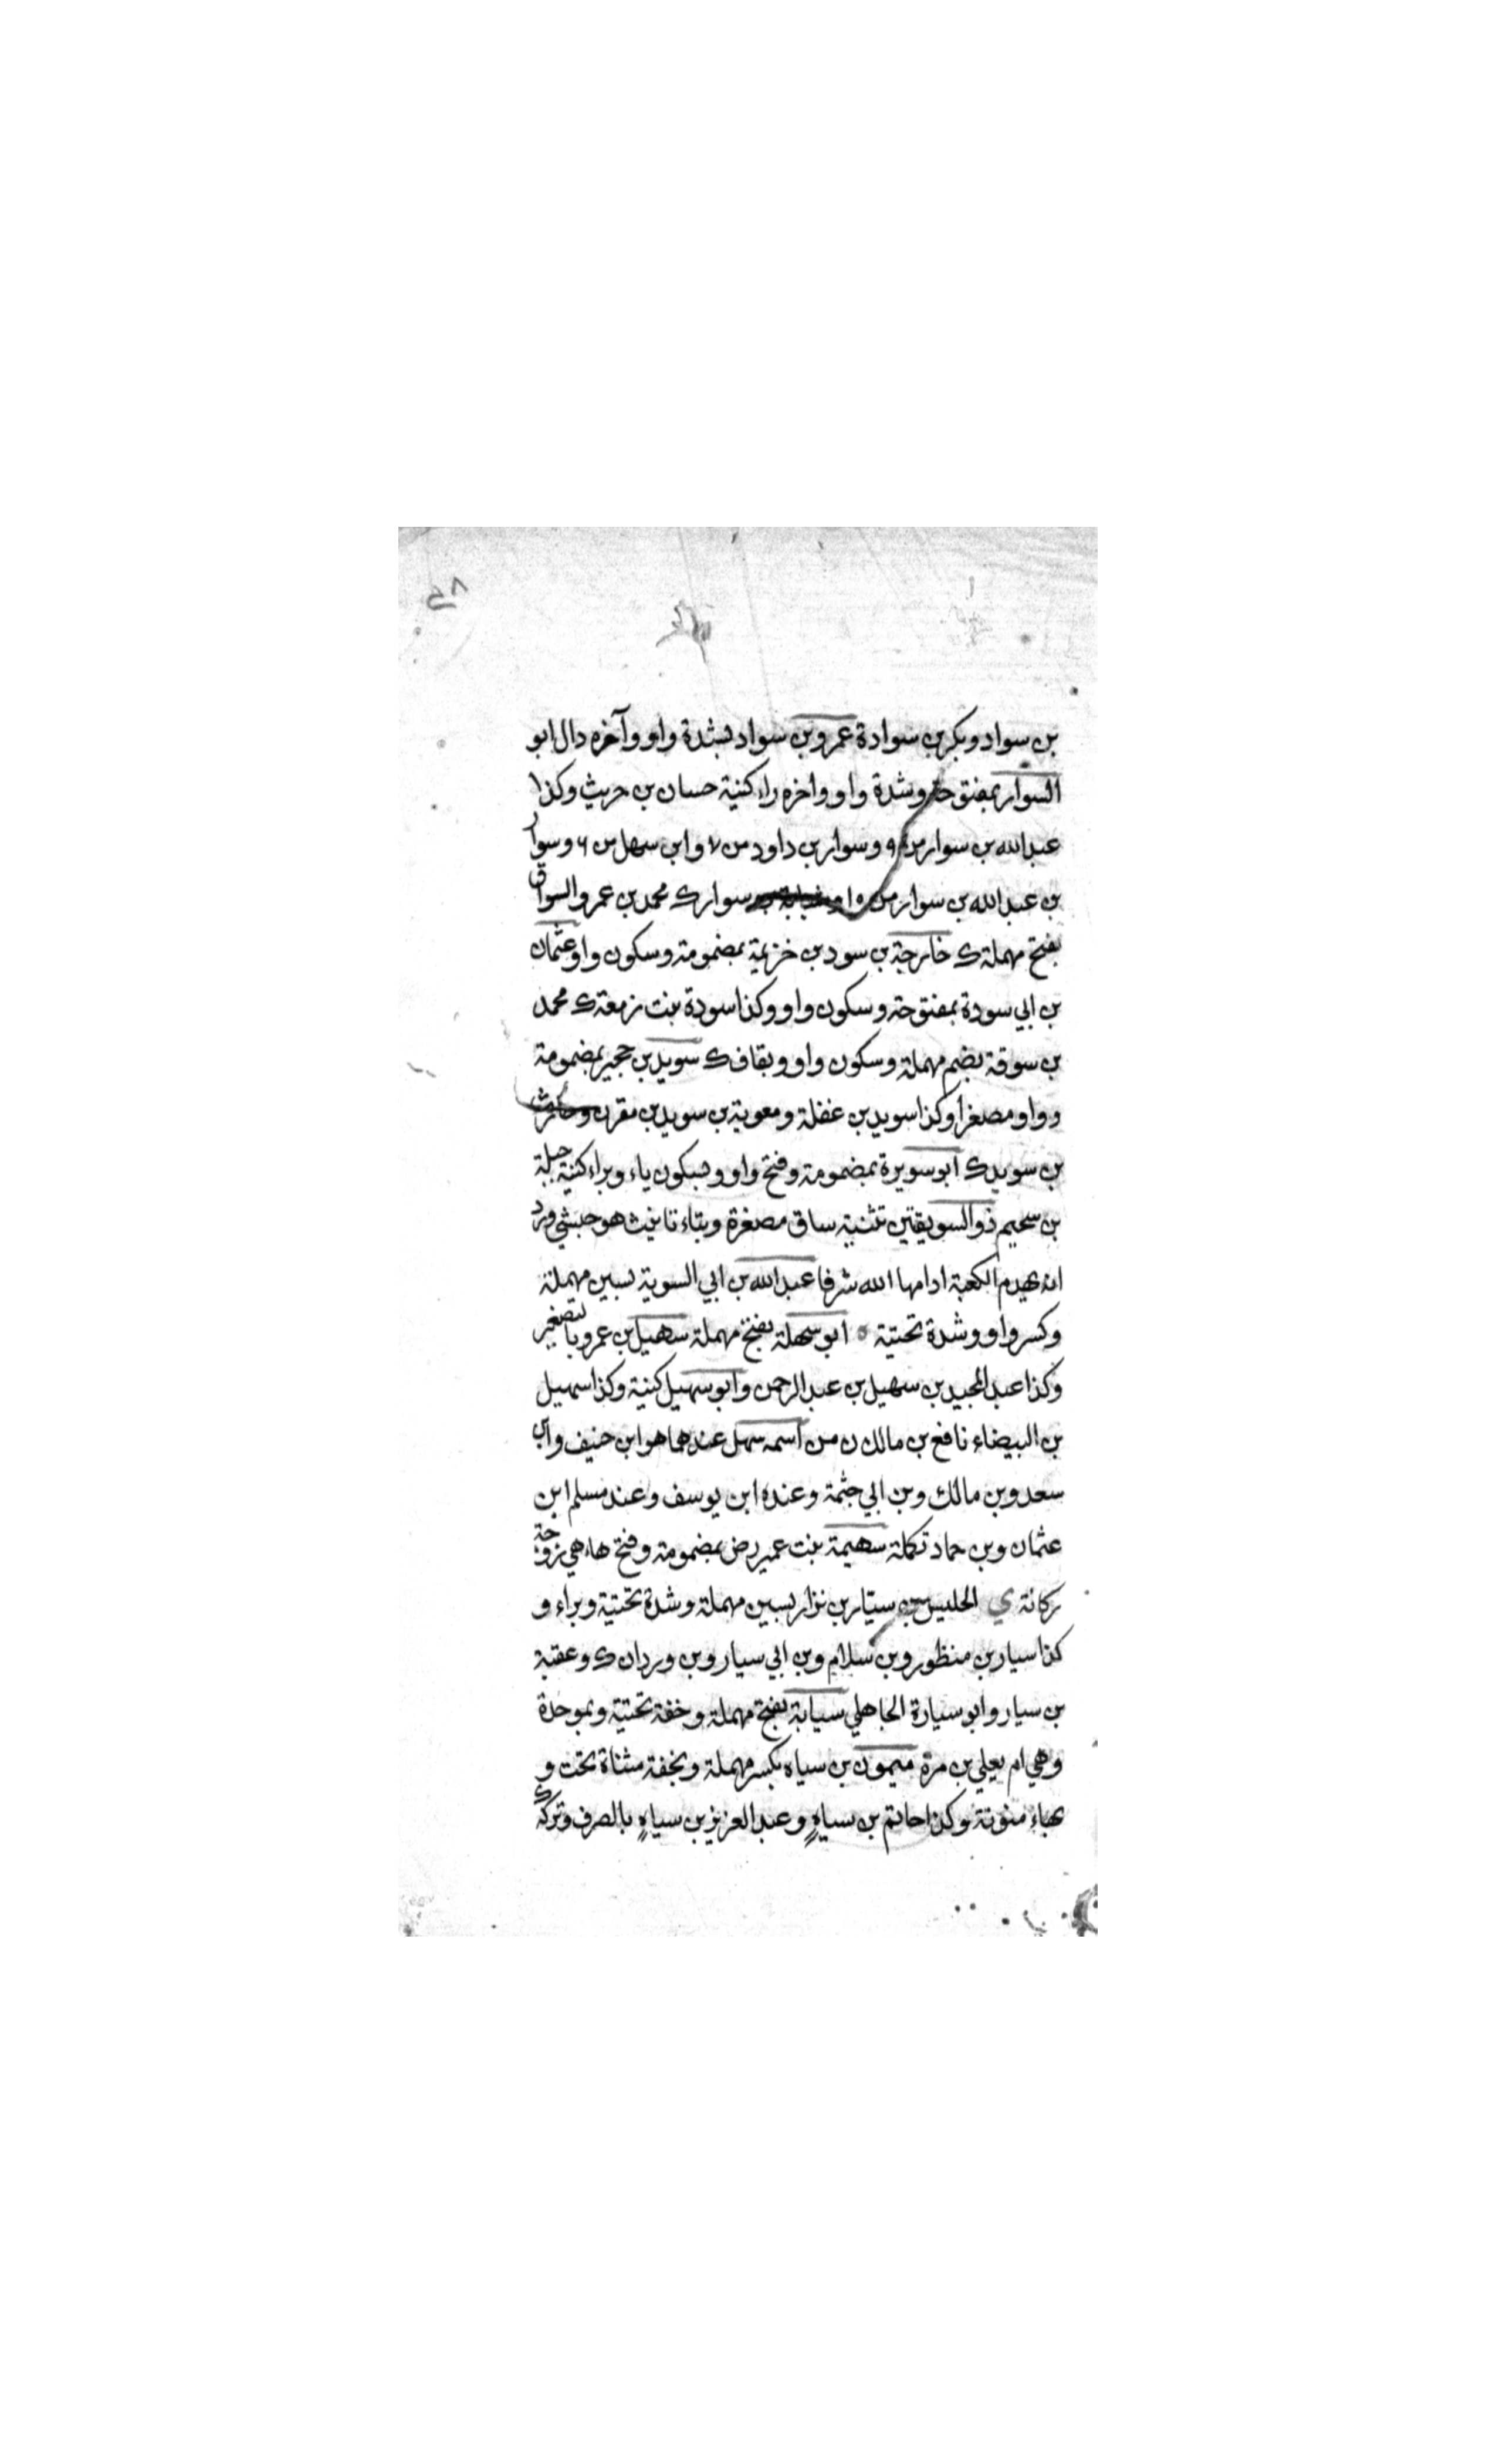 بن سواد وبكر بن سوادة عمرو بن سواد بشدة واو وآخره دال ابو
السوار بمفتوحة وشدة واو واخره راء كنية حسان بن حريث وكذا
عبد الله بن سوار من ٩ وسوار بن داود من ٧ وابن سهل من ٦ وسوار
بن عبد الله بن سوار من ١٠ سوار ك محمد بن عمرو السواق
بفتح مهملة ك خارجة بن سود بن خزيمة بمضمومة وسكون واو عثمان
بن ابي سودة بمفتوحة وسكون واو وكذا سودة بنت زمعة ك محمد
بن سوقة بضم مهملة وسكون واو وبقاف ك سويد بن حجير بمضمومة
وواو مصغرا وكذا سويد بن غفلة ومعوية بن سويد بن مقرن
بن سويد ك ابو سويرة بمضمومة وفتح واو وبسكون ياء وبراء كنية جبلة
بن سحيم ذو السويقتين تثنية ساق مصغرة وبتاء تانيث هو حبشي ورد
انه يهدم الكعبة ادامها الله شرفا عبد الله بن ابي السوية بسين مهملة
وكسر واو وشدة تحتية ابو سهلة بفتح مهملة سهيل بن عمرو بالتصغير
وكذا عبد المجيد بن سهيل بن عبد الرحمن وابو سهيل كنية وكذا سهيل
بن البيضاء نافع بن مالك ن من اسمه سهل عندهما هو ابن حنيف وابن
سعد وبن مالك وبن ابي حثمة وعنده ابن يوسف وعند مسلم ابن
عثمان وبن حماد تكملة سهيمة بنت عمير رض بمضمومة وفتح هاء هي زوجة
ركانة ي الحليس بن سيار بن نزار بسين مهملة وشدة تحتية وبراء و
كذا سيار بن منظور وبن سلام وبن ابي سيار وبن وردان ك وعقبة
بن سيار وابو سيارة الجاهلي سيابة بفتح مهملة وخفة تحتية وبموحدة
وهي ام يعلي بن مرة ميمون بن سياه بكسر مهملة وبخفة مثناة تحت و
بهاء منونة وكذا حاتم بن سياهٍ وعبد العزيز بن سياهٍ بالصرف وتركه